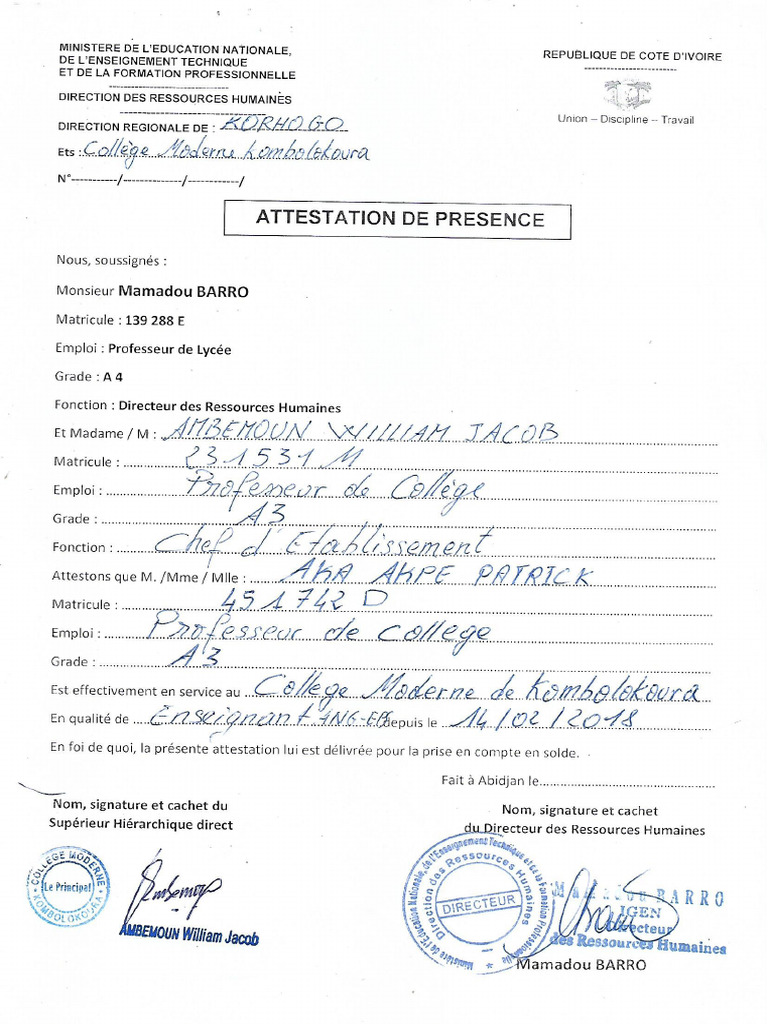 MINISTERE DE L'EDUCATION NATIONALE,
DE L'ENSEIGNEMENT TECHNIQUE
ET DE LA FORMATION PROFESSIONNELLE
REPUBLIQUE DE COTE D'IVOIRE
Union – Discipline – Travail
DIRECTION DES RESSOURCES HUMAINES
DIRECTION REGIONALE DE : KORHOGO
Ets : Collège Moderne Kombolokoura
N°-----------/--------------/------------/
ATTESTATION DE PRESENCE
Nous, soussignés :
Monsieur Mamadou BARRO
Matricule : 139 288 E
Emploi : Professeur de Lycée
Grade : A 4
Fonction : Directeur des Ressources Humaines
Et Madame / M : AMBEMOUN WILLIAM JACOB
Matricule : 231531 M
Emploi : Professeur de Collège
Grade : A3
Fonction : Chef d'Etablissement
Attestons que M. /Mme / Mlle : AKA AKPE PATRICK
Matricule : 451742 D
Emploi : Professeur de college
Grade : A3
Est effectivement en service au College Moderne de Kombolokoura
En qualité de Enseignant depuis le 14/02/2018
En foi de quoi, la présente attestation lui est délivrée pour la prise en compte en solde.
Fait à Abidjan le
Nom, signature et cachet du
Supérieur Hiérarchique direct
Nom, signature et cachet
du Directeur des Ressources Humaines
COLLEGE MODERNE
Le Principal
KOMBOLOKOURA
AMBEMOUN William Jacob
Ministère de l'Education Nationale, de l'Enseignement Technique et de la Formation Professionnelle
Direction des Ressources Humaines
DIRECTEUR
Mamadou BARRO
IGEN
Directeur
des Ressources Humaines
Mamadou BARRO